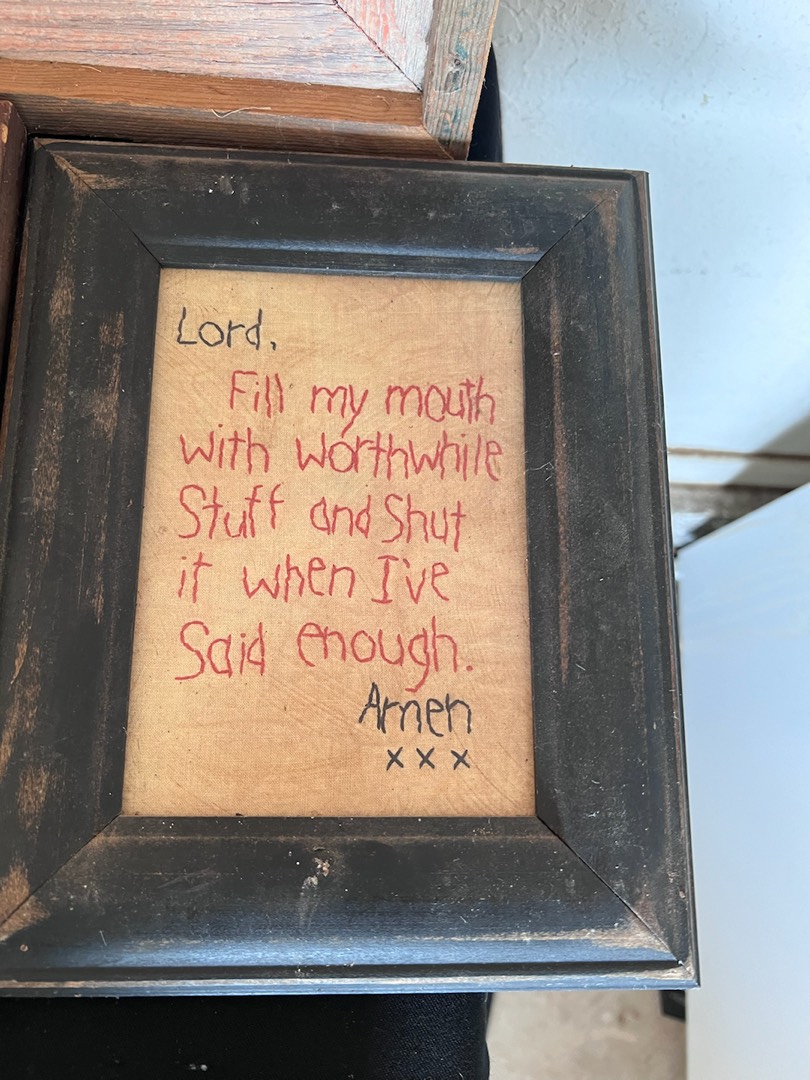 Lord,
Fill my mouth
with worthwhile
Stuff and Shut
it when I've
Said enough.
Amen
xxx